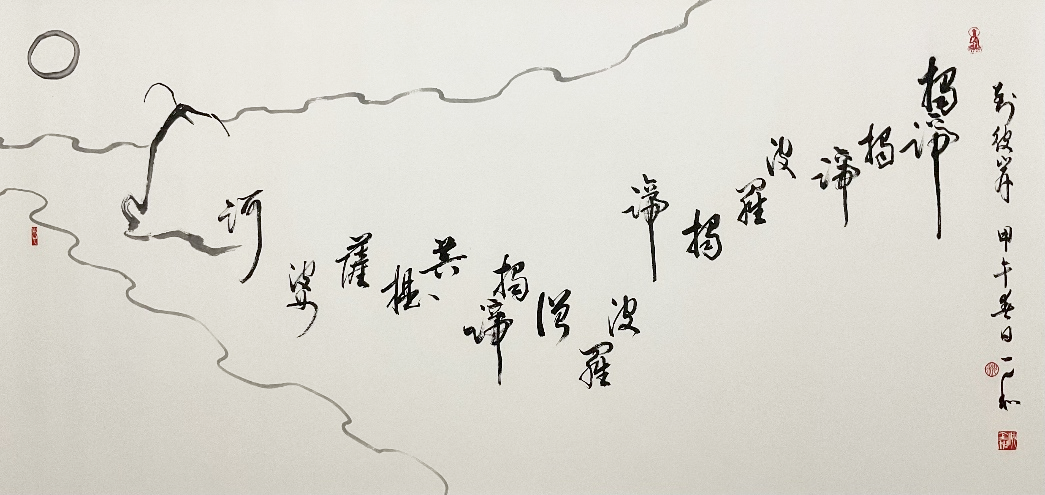 到彼岸 甲午春日 一
揭諦
揭諦
波羅
揭諦
波羅
僧
揭諦
菩提
薩
婆
訶